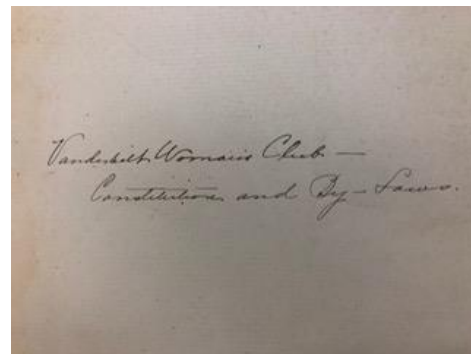 Vanderbilt Woman's Club —
Constitution and By-Laws.